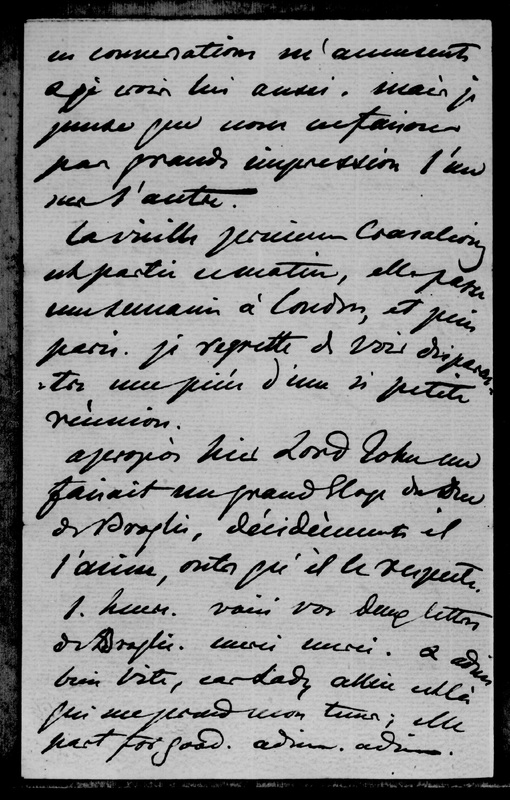 ces conversations m'amusent
à ce je crois lui aussi. mais je
pense que nous ne faisons
pas grande impression l'un
sur l'autre.
La vieille princesse Crasalcoviz
est partie ce matin, elle passe
une semaine à Londres, et puis
paris. je regrette de voir disparaî-
-tre une pièce d'une si petite
réunion.
apropos hier Lord John me
faisait un grand éloge du Duc
de Broglie, décidément il
l'aime, outre qu'il le respecte.
1. heure. voici vos deux lettres
de Broglie. merci merci. et adieu
bien vite, car Lady Allice est là
qui me prend mon tems; elle
part for good. adieu. adieu.